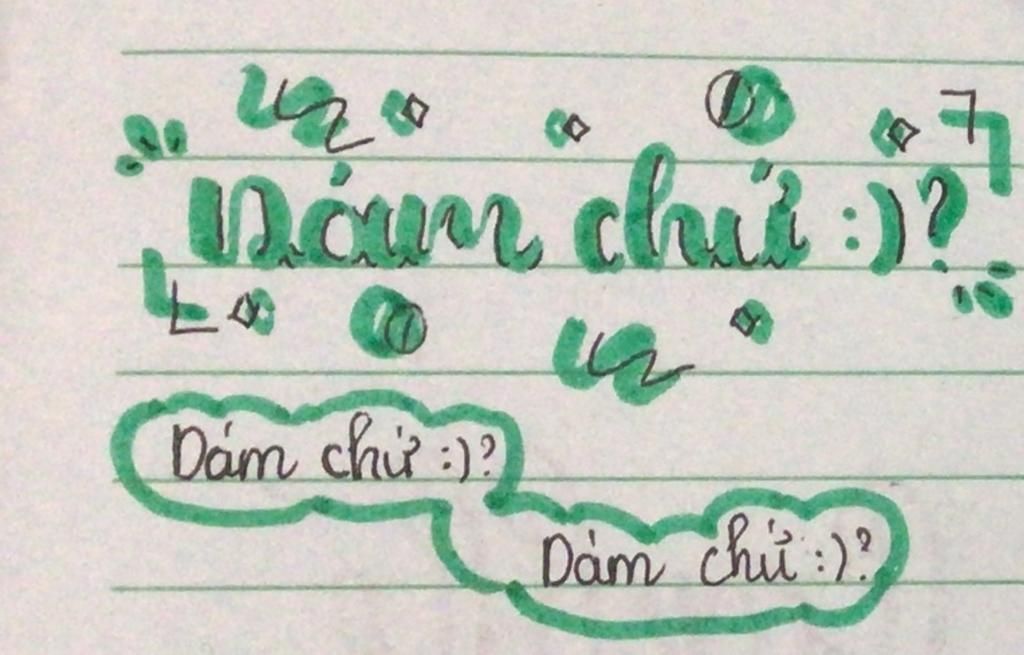 Dám chứ :)?
Dám chứ :)?
Dám chứ :)?